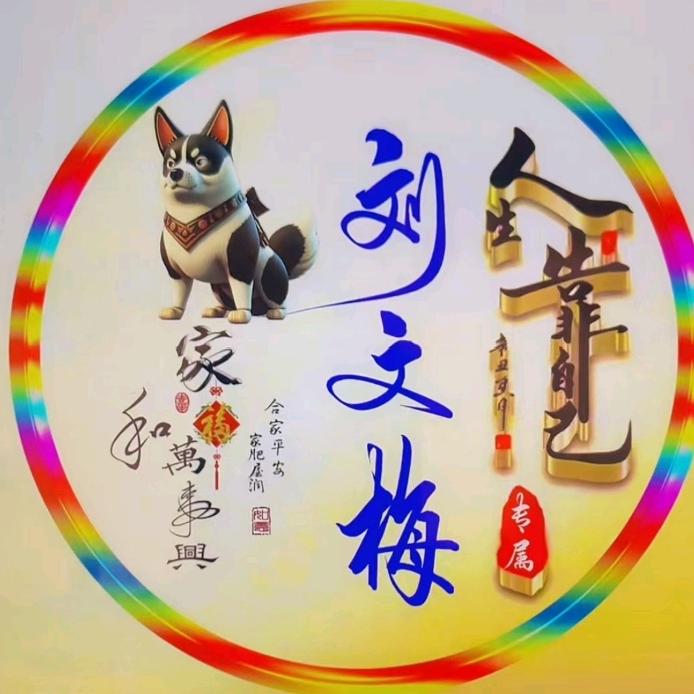 人生靠自己
辛丑夏月
专属
刘文梅
家和萬事興
福
合家平安
家肥屋润